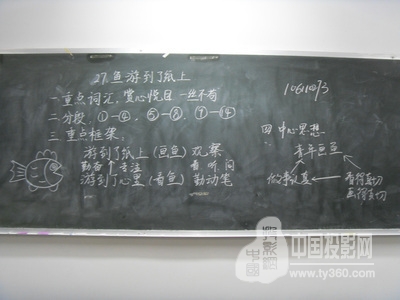 27.鱼游到了纸上
一 重点词汇，赏心悦目 一丝不苟
二 分段，①-④，⑤-⑧，⑦-⑭
三 重点框架
游到了纸上（画鱼）观察
勤奋 专注 看 听 问
游到了心里（看鱼）勤动笔
四 中心思想
青年画鱼
做事认真
看得真切
画得真切
中国投影网
www.ty360.com